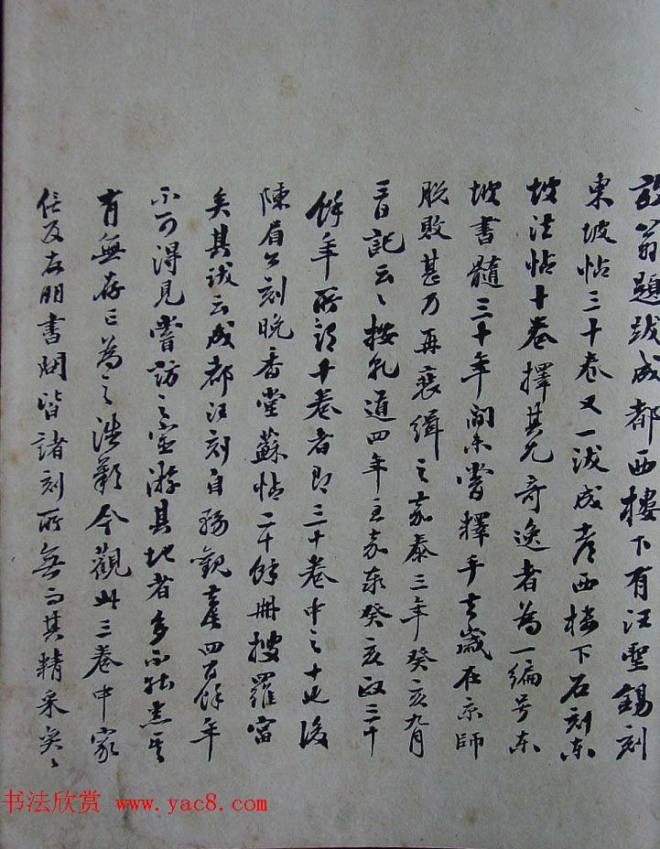 放翁題跋成都西樓下有汪聖錫刻
東坡帖三十卷又一跋成都西樓下石刻東
坡法帖十卷擇其尤奇逸者為一編号東
坡書髓三十年間未嘗釋手去歲在京師
脫敗甚乃再裒緝之嘉泰三年癸亥九月
三日記云々按乾道四年至嘉泰癸亥政三十
餘年所謂十卷者即三十卷中之十也後
陳眉公刻晚香堂蘇帖二十餘冊搜羅富
矣其跋云成都汪刻自
不可得見嘗訪之宦游其地者多不能悉其
有無存亡為之浩歎今觀此三卷中家
任及右明書烟皆諸刻所無而其精采奕々
书法欣赏 www.yac8.com